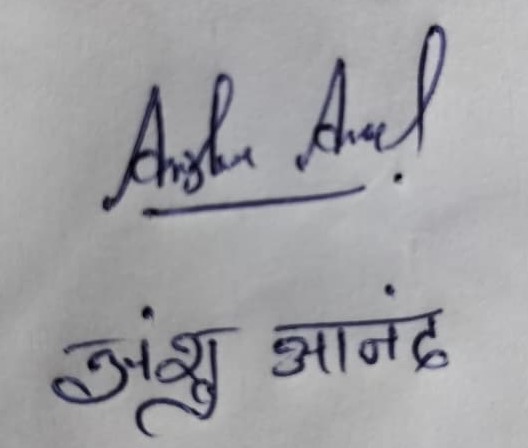 Anshu Anand
अंशु आनंद